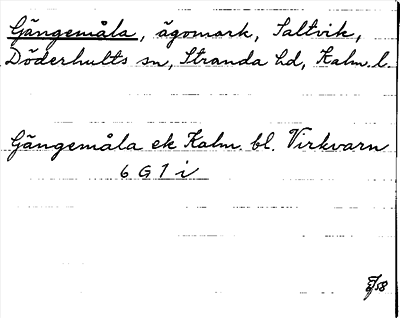 Gängemåla, ägomark, Saltvik,
Döderhults sn, Stranda hd, Kalm. l.
Gängemåla ek Kalm. bl. Virkvarn
6 G 7 i
58